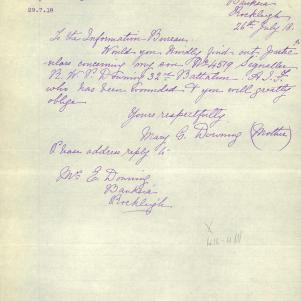 29.7.18
Banksia
Rockleigh
26th July 18.
To the Information Bureau.
Would you kindly find out partic
ulars concerning my son No 4579 Signaller
R. W. P. Downing 32nd Battalion A.I.F
who has been wounded & you will greatly
oblige
Yours respectfully
Mary E. Downing (Mother)
Please address reply to
Mrs E. Downing
Banksia
Rockleigh
X